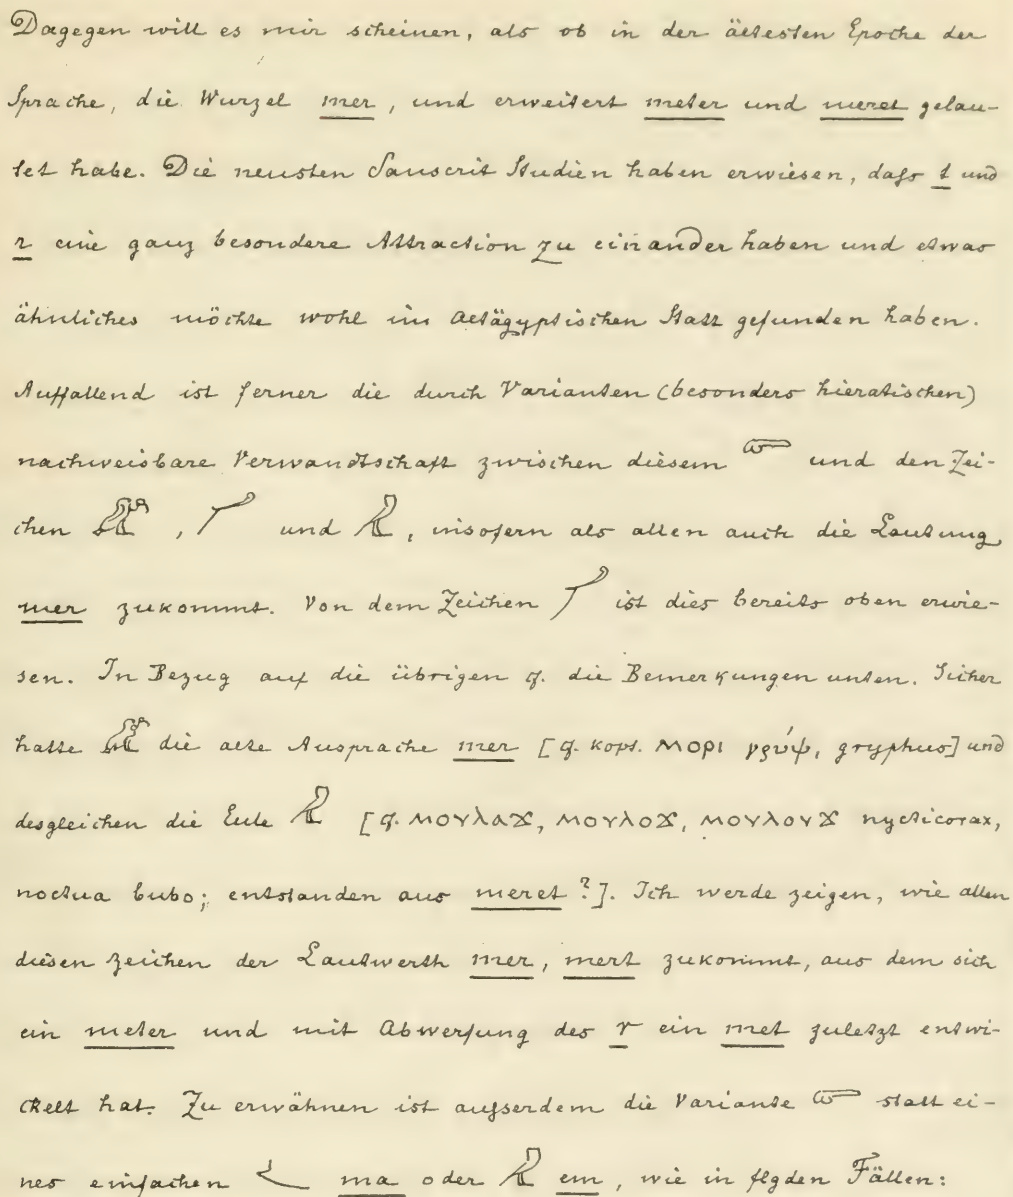 Dagegen will es mir scheinen, als ob in der ältesten Epoche der
Sprache, die Wurzel mer, und erweitert meter und meret gelau-
tet habe. Die neusten Sanscrit Studien haben erwiesen, daſs t und
r eine ganz besondere Attraction zu einander haben und etwas
ähnliches möchte wohl im Altägyptischen Statt gefunden haben.
Auffallend ist ferner die durch Varianten (besonders hieratischen)
nachweisbare Verwandtschaft zwischen diesem und den Zei-
chen , und , insofern als allen auch die Lautung
mer zukommt. Von dem Zeichen ist dies bereits oben erwie-
sen. In Bezug auf die übrigen cf. die Bemerkungen unten. Sicher
hatte die alte Ausprache mer [cf. kopt. ⲙⲟⲣⲓ γρύψ, gryphus] und
desgleichen die Eule [cf. ⲙⲟⲩⲗⲁϫ, ⲙⲟⲩⲗⲟϫ, ⲙⲟⲩⲗⲟⲩϫ nycticorax,
noctua bubo; entstanden aus meret?]. Ich werde zeigen, wie allen
diesen Zeichen der Lautwerth mer, mert zukommt, aus dem sich
ein meter und mit Abwerfung des r ein met zuletzt entwi-
ckelt hat. Zu erwähnen ist auſserdem die Variante statt ei-
nes einfachen ma oder em, wie in flgden Fällen: